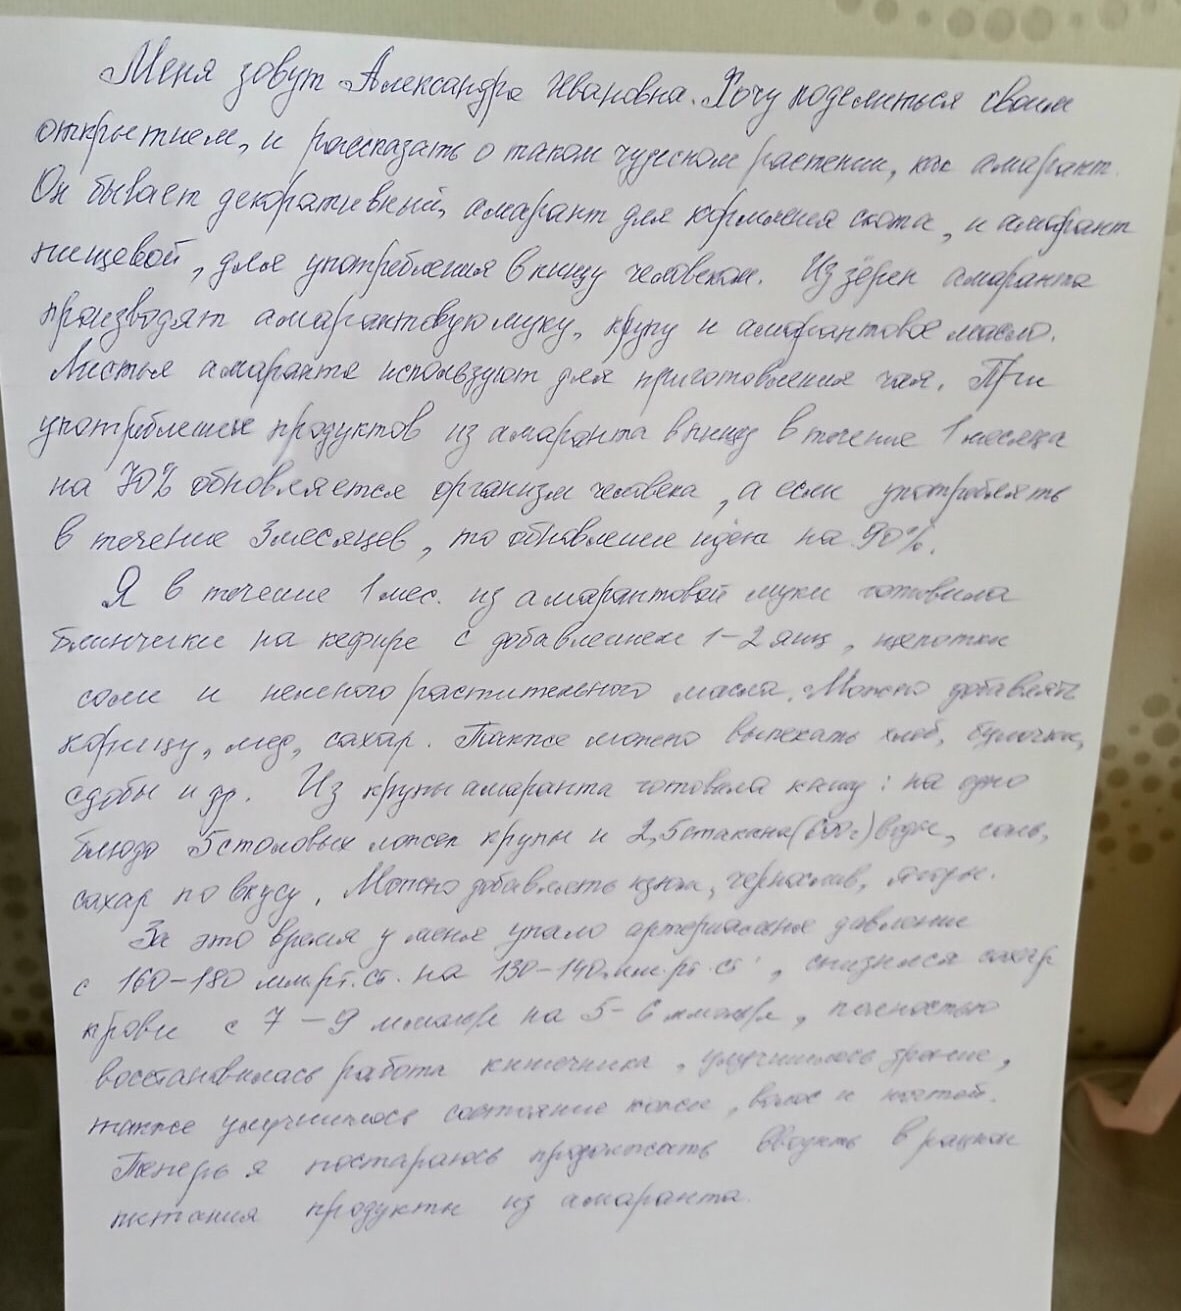 Меня зовут Александра Ивановна. Хочу поделиться своим
открытием, и рассказать о таком чудесном растении, как амарант.
Он бывает декоративный, амарант для кормления скота, и амарант
пищевой, для употребления в пищу человеком. Из зёрен амаранта
производят амарантовую муку, крупу и амарантовое масло.
Листья амаранта используют для приготовления чая. При
употреблении продуктов из амаранта в пищу в течение 1 месяца
на 70% обновляется организм человека, а если употреблять
в течение 3 месяцев, то обновление идёт на 90%.
Я в течение 1 мес. из амарантовой муки готовила
блинчики на кефире с добавлением 1-2 яиц, щепотки
соли и немного растительного масла. Можно добавлять
корицу, мед, сахар. Также можно выпекать хлеб, булочки,
сдобы и др. Из крупы амаранта готовила кашу: на одно
блюдо 5 столовых ложек крупы и 2,5 стакана (600г) воды, соль,
сахар по вкусу. Можно добавлять изюм, чернослив, ягоды.
За это время у меня упало артериальное давление
с 160-180 мм.рт.ст. на 130-140 мм.рт.ст., снизился сахар
крови с 7-9 ммоль/л на 5-6 ммоль/л, полностью
восстановилась работа кишечника, улучшилось зрение,
также улучшилось состояние кожи, волос и ногтей.
Теперь я постараюсь продолжать вводить в рацион
питания продукты из амаранта.